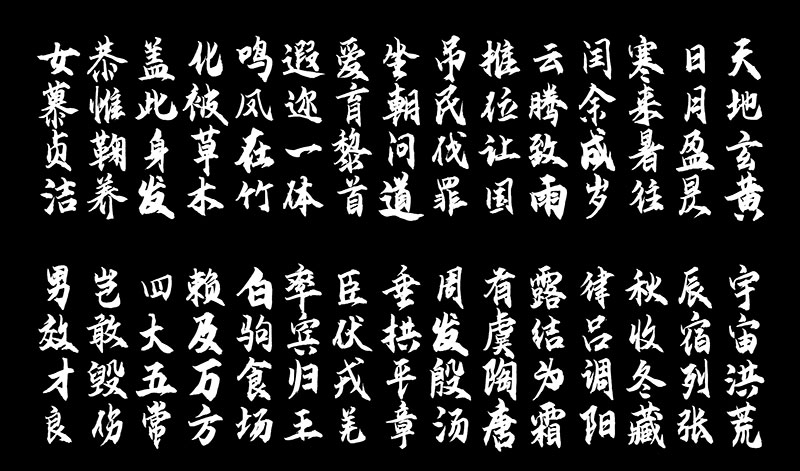 天地玄黄
日月盈昃
寒来暑往
闰余成岁
云腾致雨
推位让国
吊民伐罪
坐朝问道
爱育黎首
遐迩一体
鸣凤在竹
化被草木
盖此身发
恭惟鞠养
女慕贞洁
宇宙洪荒
辰宿列张
秋收冬藏
律吕调阳
露结为霜
有虞陶唐
周发殷汤
垂拱平章
臣伏戎羌
率宾归王
白驹食场
赖及万方
四大五常
岂敢毁伤
男效才良